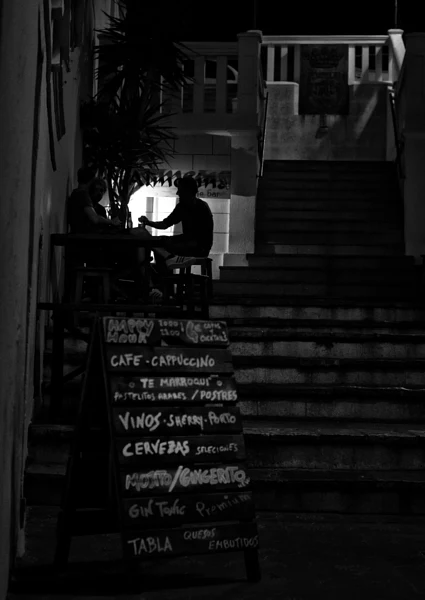 HAPPY HOUR
CAFE · CAPPUCCINO
TE MARROQUI
PASTELITOS ARABES / POSTRES
VINOS · SHERRY · PORTO
CERVEZAS SELECIONES
MOJITO/GINGERITO
GIN TONIC Premium
TABLA QUESOS EMBUTIDOS